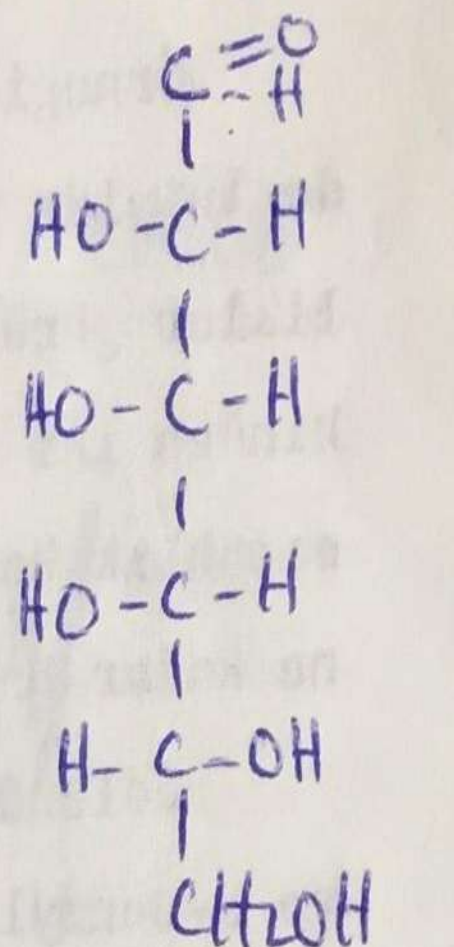 C=O
-H
|
HO-C-H
|
HO-C-H
|
HO-C-H
|
H-C-OH
|
CH2OH